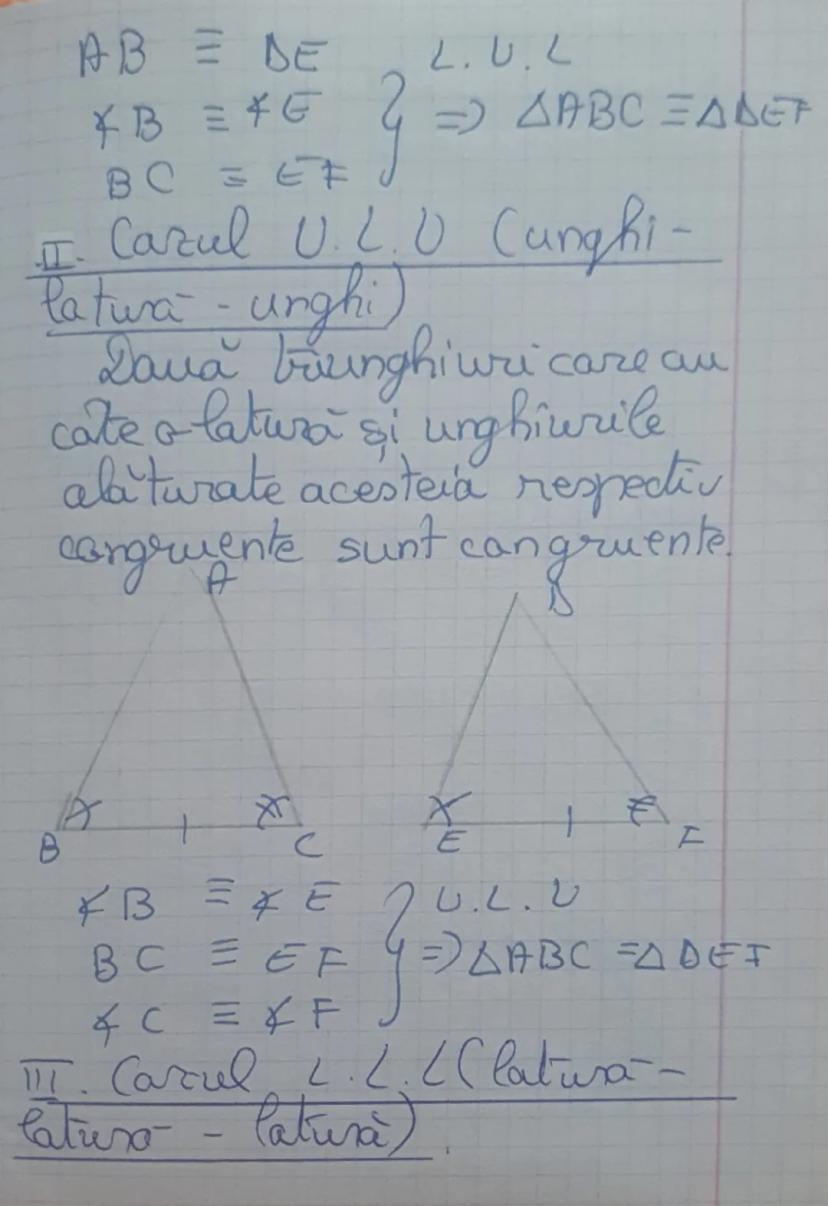 AB ≡ DE L.U.L
∢B ≡ ∢E } => ΔABC ≡ ΔDEF
BC ≡ EF
II. Cazul U.L.U (unghi-
latură - unghi)
Două triunghiuri care au
câte o latură și unghiurile
alăturate acesteia respectiv
congruente sunt congruente.
A D
B C E F
∢B ≡ ∢E U.L.U
BC ≡ EF } => ΔABC ≡ Δ DEF
∢C ≡ ∢F
III. Cazul L.L.L (latură -
latură - latură).